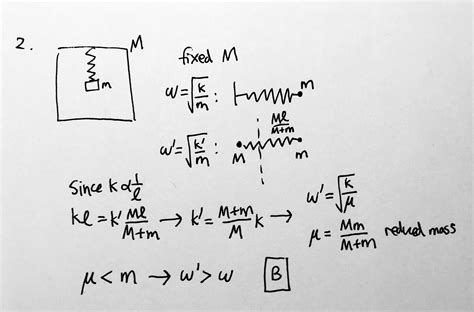 2.
M
m
fixed M
ω=√(k/m) : m
Mℓ/(M+m)
ω'=√(k'/m) : M m
Since k∝1/ℓ
kℓ=k' Mℓ/(M+m) → k'=(M+m)/M k → ω'=√(k/μ)
μ = Mm/(M+m) reduced mass
μ<m → ω'>ω B